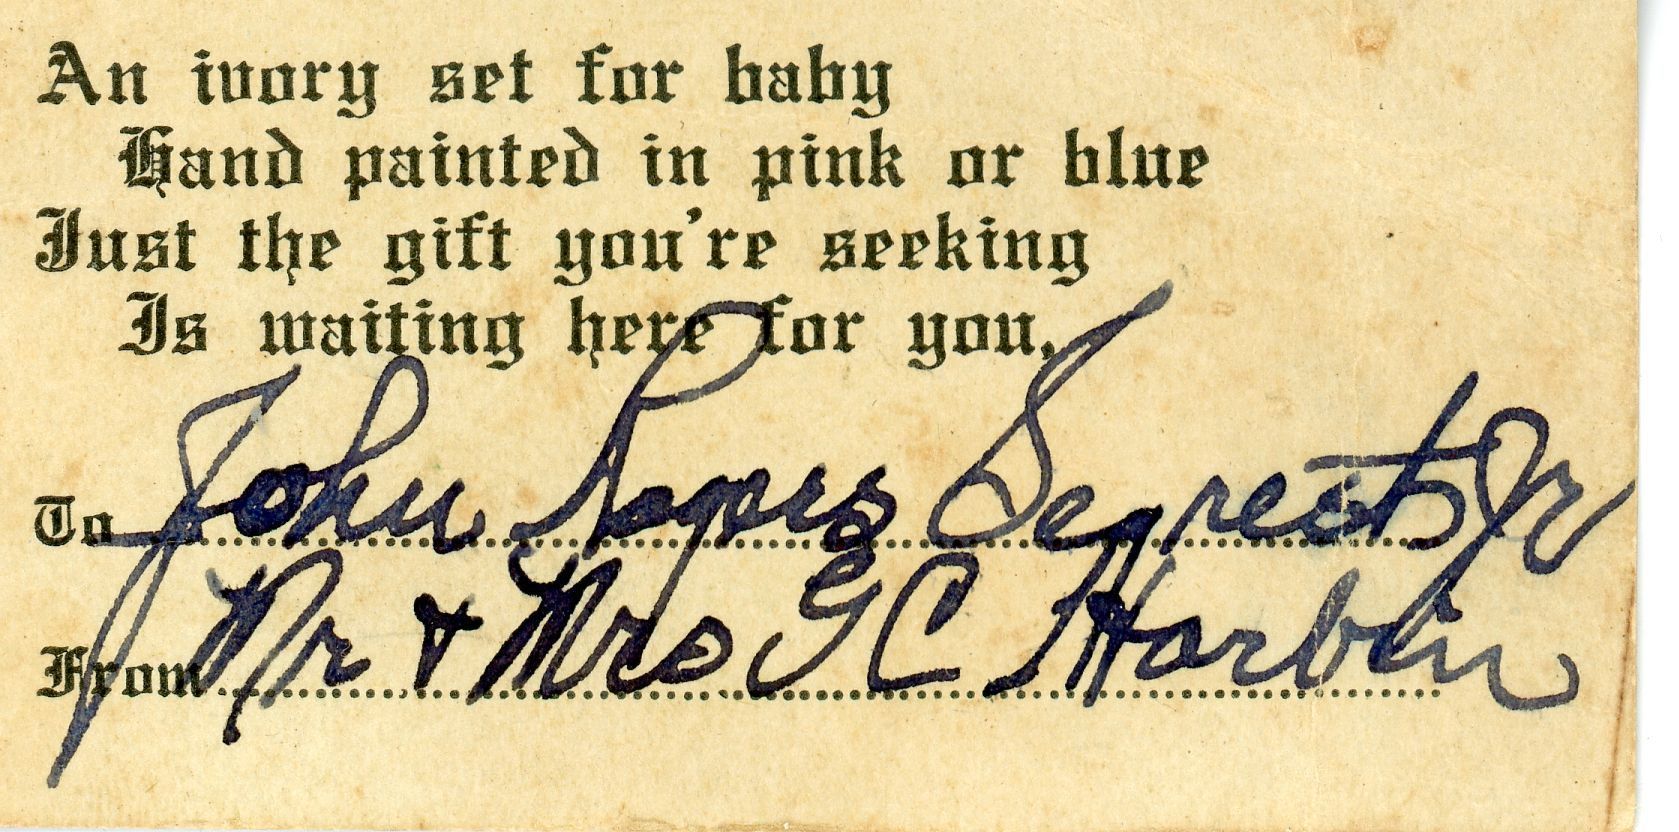 An ivory set for baby
Hand painted in pink or blue
Just the gift you're seeking
Is waiting here for you.
To John Segrest Jr
From Mr & Mrs G C Harbin